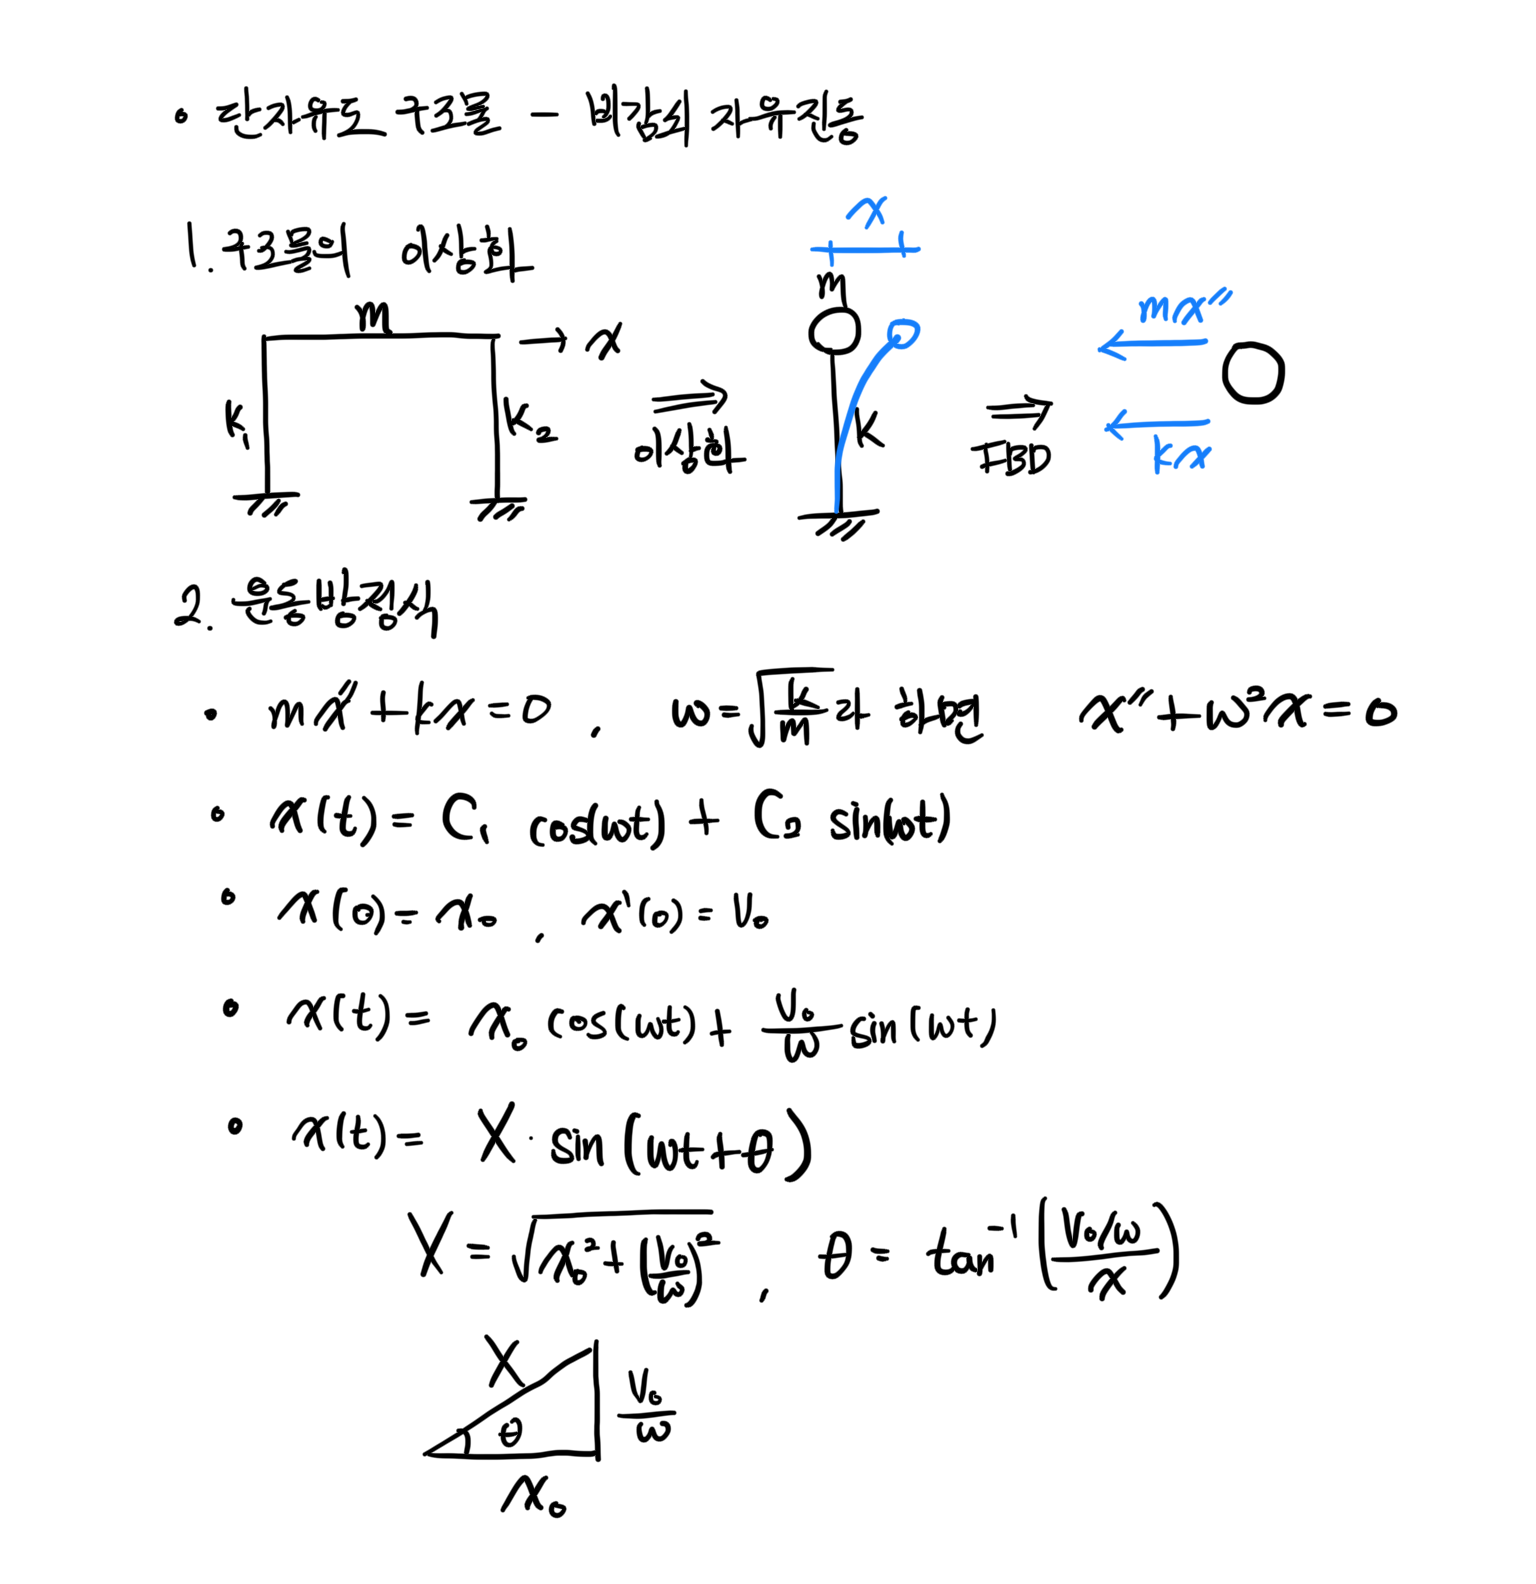 • 단자유도 구조물 - 비감쇠 자유진동
1. 구조물의 이상화
m
→ x
k₁
k₂
⇒
이상화
x
m
k
⇒
FBD
mx″
kx
2. 운동방정식
• mx″+kx=0 , ω=√(k/m)라 하면 x″+ω²x=0
• x(t)= C₁ cos(ωt) + C₂ sin(ωt)
• x(0)= x₀ , x'(0)= V₀
• x(t)= x₀ cos(ωt)+ V₀/ω sin(ωt)
• x(t)= X · sin(ωt+θ)
X = √(x₀²+(V₀/ω)²) , θ = tan⁻¹((V₀/ω)/x)
X
θ
V₀/ω
x₀